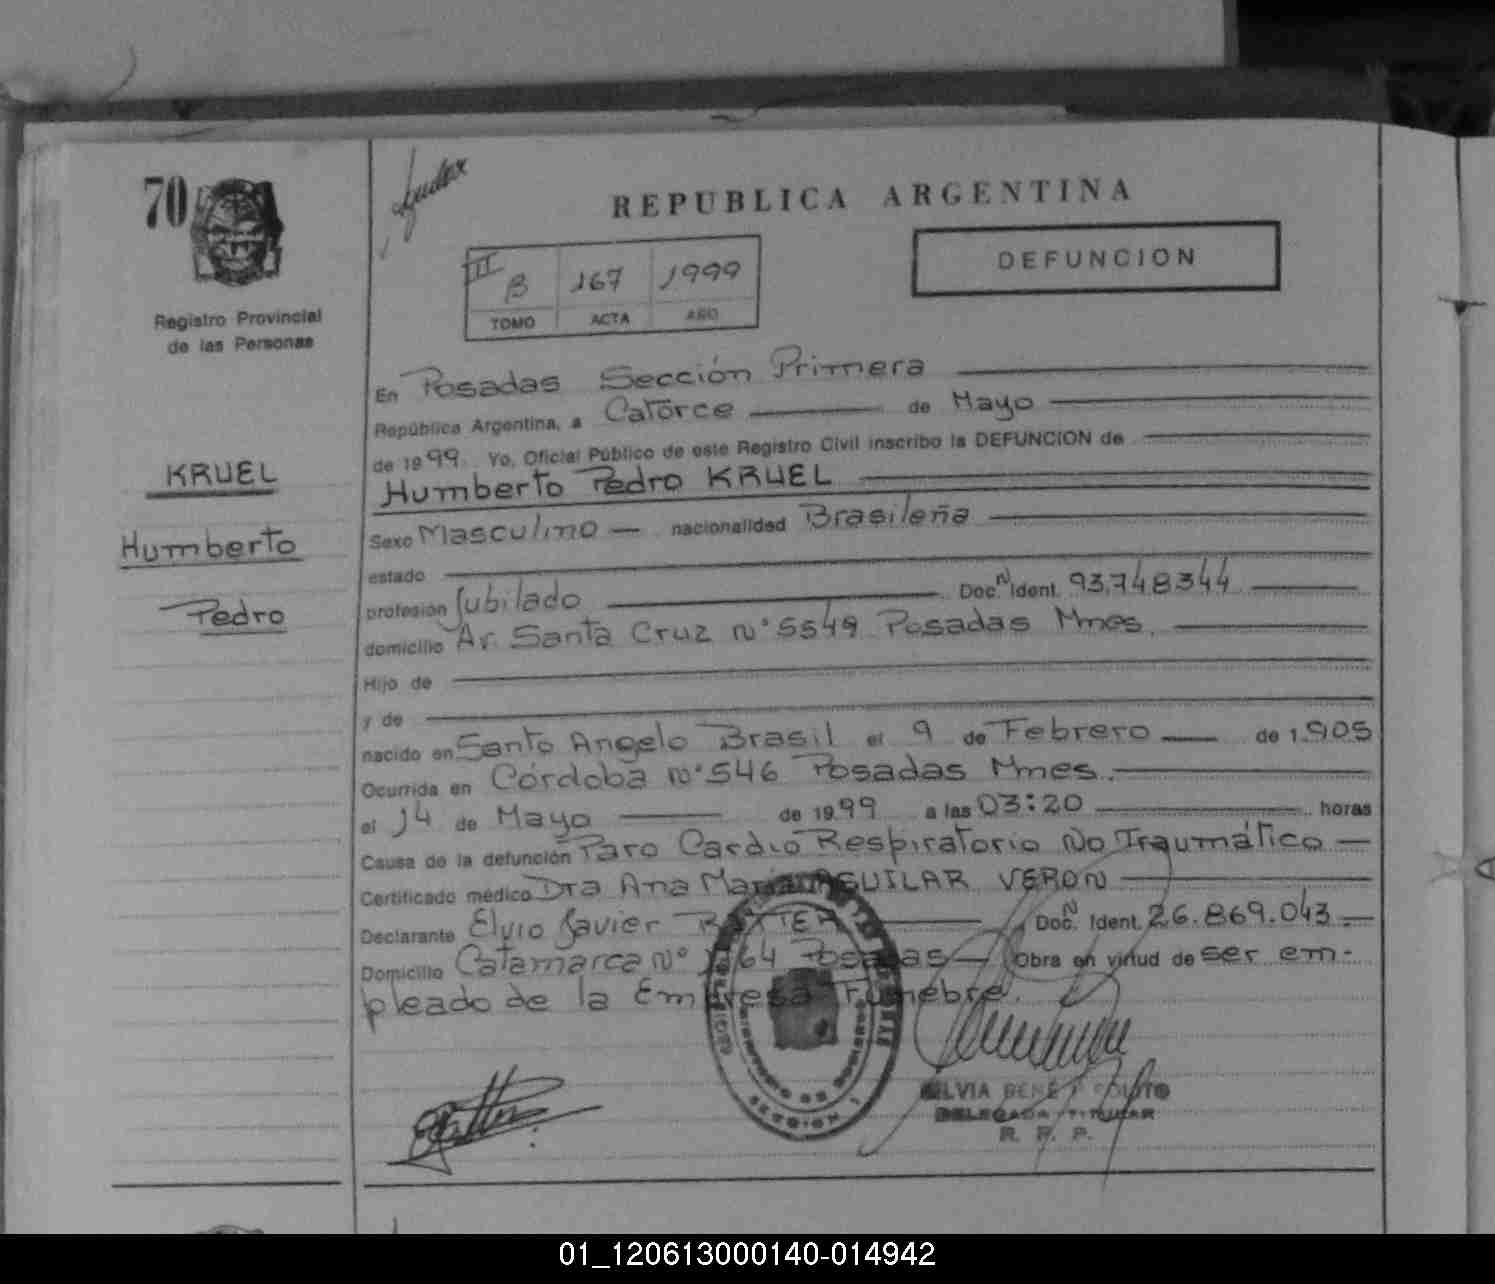 70
REPUBLICA ARGENTINA
DEFUNCION
III B 167 1999
TOMO ACTA AÑO
Registro Provincial
de las Personas
KRUEL
Humberto
Pedro
En Posadas Sección Primera
República Argentina, a Catorce de Mayo
de 1999. Yo, Oficial Público de este Registro Civil inscribo la DEFUNCION de
Humberto Pedro KRUEL
Sexo Masculino nacionalidad Brasileña
estado
profesión Jubilado Doc. N Ident. 93.748344
domicilio Av. Santa Cruz N° 5549 Posadas Mnes.
Hijo de
y de
nacido en Santo Angelo Brasil el 9 de Febrero de 1.905
Ocurrida en Córdoba N° 546 Posadas Mnes.
el 14 de Mayo de 1999 a las 03:20 horas
Causa de la defunción Paro Cardio Respiratorio No Traumático
Certificado médico Dra Ana María AGUILAR VERON
Declarante Elvio Javier Doc. N Ident. 26.869.043
Domicilio Catamarca N° Posadas Obra en virtud de ser em-
pleado de la Empresa Fúnebre.
SECCION 1
SILVIA
DELEGADA TITULAR
R. P. P.
01_120613000140-014942